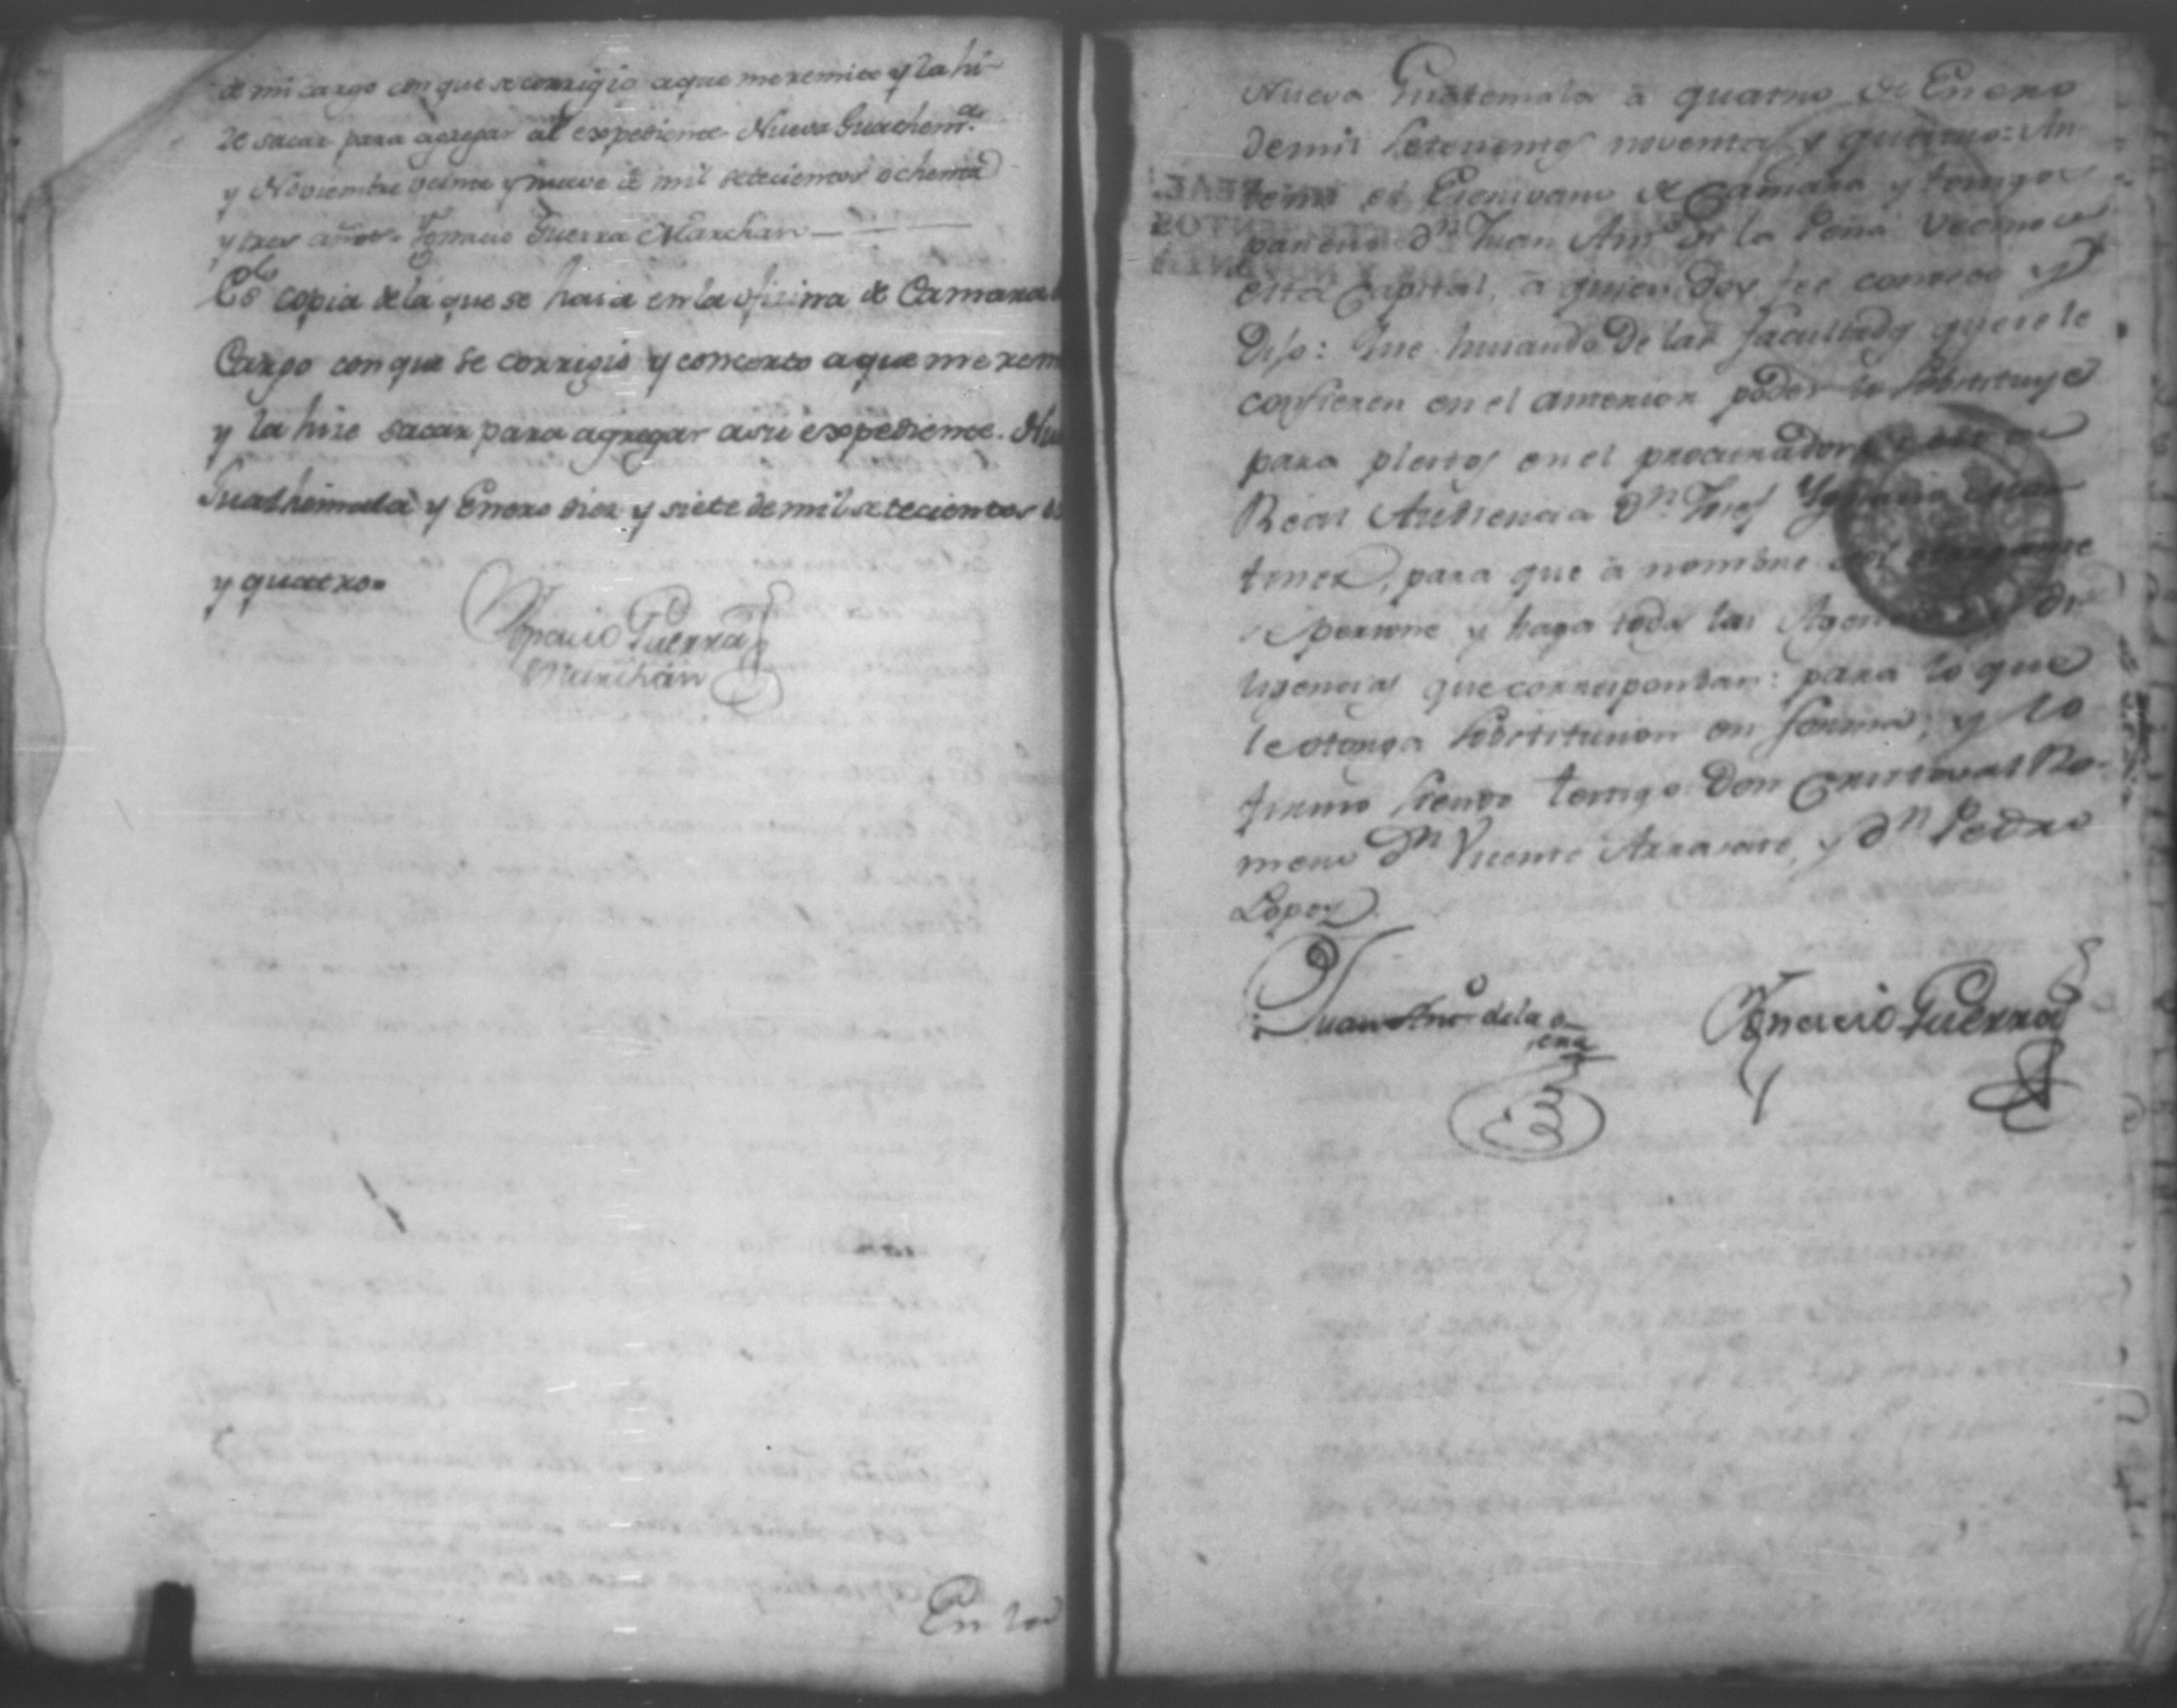 de mi cargo con que se corrigio a que me remito y la hi-
ze sacar para agregar al expediente. Nueva Guathem.ª
y Noviembre veinte y nueve de mil setecientos ochenta
y tres años. Ygnacio Guerra Marchan
Es copia de la que se hava en la oficina de Camara
Cargo con que se corrigio y concerto a que me rem
y la hise sacar para agregar a su expediente. Nu
Guathemala y Enero diez y siete de mil setecientos
y quatro=
Ygnacio Guerra
Marchan
En la
Nueva Guatemala à quatro de Enero
de mil setecientos noventa y quatro: An
temi el Escrivano de Camara y testigos
parecio Dn. Juan Anto. de la Peña Vecino de
esta Capital, a quien doy fee conosco y
Dijo: Que husando de las facultades que se le
confieren en el anterior poder lo sobstituye
para pleitos en el procurador de
Real Audiencia Dn. Josef Ygnacio
tinez, para que à nombre del otorgante
se persone y haga todas las Agen di
ligencias que correspondan: para lo que
le otorga sobstitucion en forma; y lo
firmo siendo testigos Don Cristoval Ro-
mero Dn. Vicente Arrasate, y Dn. Pedro
Lopez.
Juan Anto. de la Peña
Ygnacio Guerra